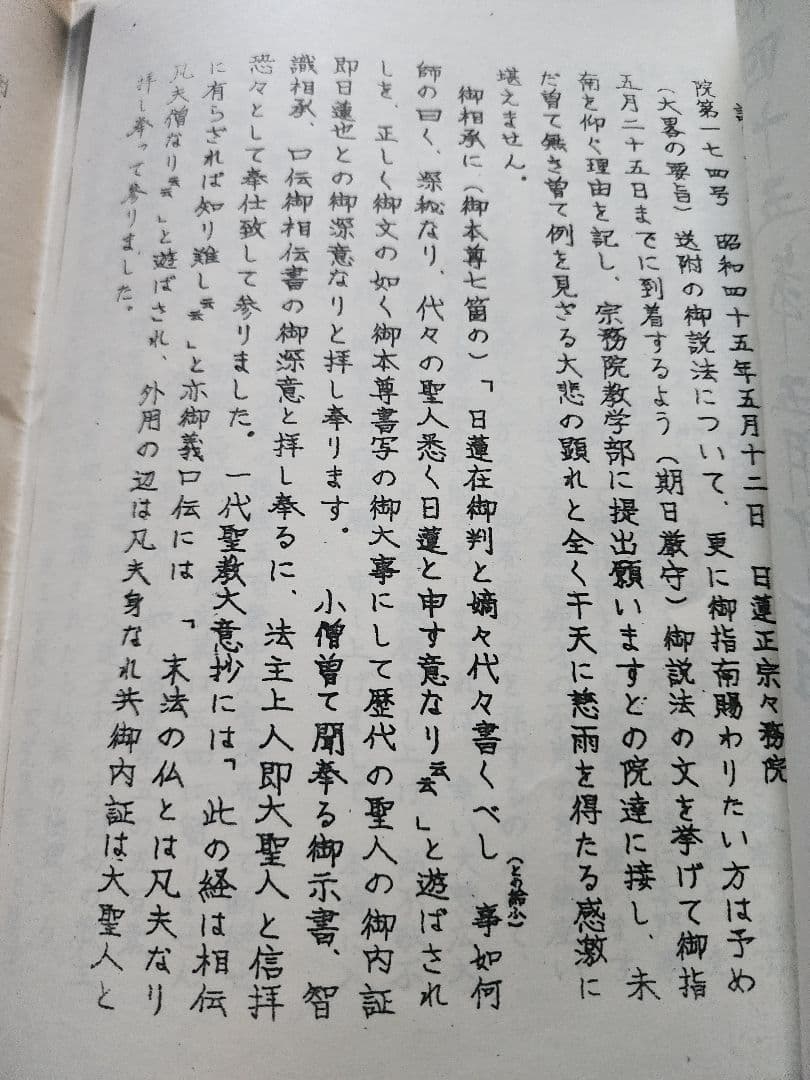 院第一七四号　昭和四十五年五月十二日　日蓮正宗々務院
（大畧の要旨）送附の御説法について、更に御指南賜わりたい方は予め
五月二十五日までに到着するよう（期日厳守）御説法の文を挙げて御指
南を仰ぐ理由を記し、宗務院教学部に提出願いますとの院達に接し、未
だ曽て無き曽て例を見ざる大悲の顕れと全く干天に慈雨を得たる感激に
堪えません。
御相承に（御本尊七箇の）「日蓮在御判と嫡々代々書くべし（との給ふ）事如何
師の曰く、深秘なり、代々の聖人悉く日蓮と申す意なり云云」と遊ばされ
しを、正しく御文の如く御本尊書写の御大事にして歴代の聖人の御内証
即日蓮也との御深意なりと拝し奉ります。　小僧曽て聞奉る御示書、智
識相承、口伝御相伝書の御深意と拝し奉るに、法主上人即大聖人と信拝
恐々として奉仕致して参りました。一代聖教大意抄には「此の経は相伝
に有らざれば知り難し云云」と亦御義口伝には「末法の仏とは凡夫なり
凡夫僧なり云云」と遊ばされ、外用の辺は凡夫身なれ共御内証は大聖人と
拝し奉って参りました。